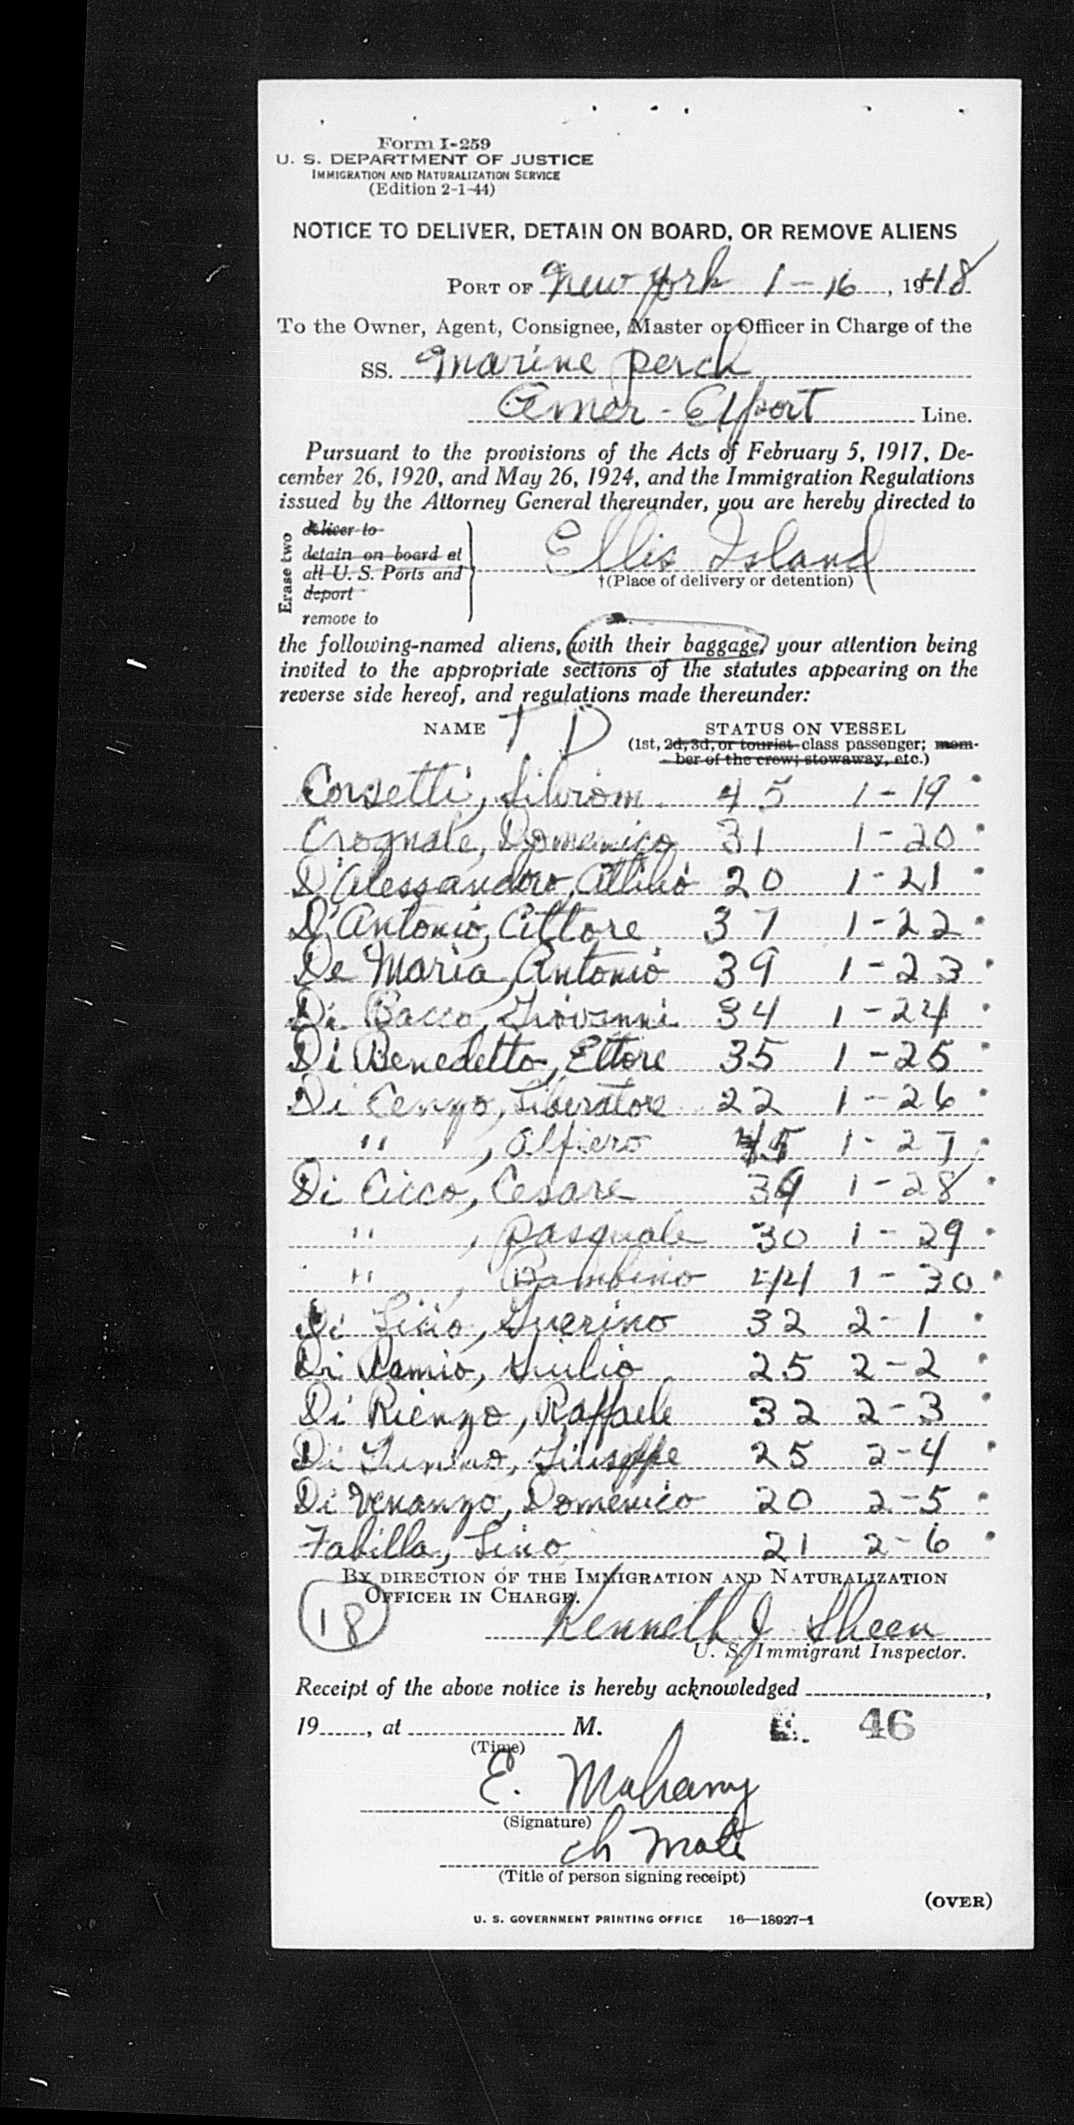 Form I-259
U. S. DEPARTMENT OF JUSTICE
IMMIGRATION AND NATURALIZATION SERVICE
(Edition 2-1-44)
NOTICE TO DELIVER, DETAIN ON BOARD, OR REMOVE ALIENS
PORT OF New York 1-16, 1948
To the Owner, Agent, Consignee, Master or Officer in Charge of the
SS. Marine Perch
Amer-Export Line.
Pursuant to the provisions of the Acts of February 5, 1917, De-
cember 26, 1920, and May 26, 1924, and the Immigration Regulations
issued by the Attorney General thereunder, you are hereby directed to
Erase two
deliver to
detain on board at
all U. S. Ports and
deport
remove to
Ellis Island
†(Place of delivery or detention)
the following-named aliens, with their baggage, your attention being
invited to the appropriate sections of the statutes appearing on the
reverse side hereof, and regulations made thereunder:
NAME T D STATUS ON VESSEL
(1st, 2d, 3d, or tourist class passenger; mem-
ber of the crew; stowaway, etc.)
Corsetti, 45 1-19
Crognale, Domenico 31 1-20
D'Alessandro, Attilio 20 1-21
D'Antonio, Ettore 37 1-22
De Maria, Antonio 39 1-23
Di Bacco, Giovanni 34 1-24
Di Benedetto, Ettore 35 1-25
Di Cenzo, Liberatore 22 1-26
" , Alfiero 1-27
Di Cicco, Cesare 39 1-28
" , Pasquale 30 1-29
" , Bambino 44 1-30
Di Guerino 32 2-1
Di Giulio 25 2-2
Di Rienzo, Raffaele 32 2-3
Di Giuseppe 25 2-4
Di Venanzo, Domenico 20 2-5
Fabilla, Lino 21 2-6
BY DIRECTION OF THE IMMIGRATION AND NATURALIZATION
OFFICER IN CHARGE.
18
Kenneth J Sheen
U. S. Immigrant Inspector.
Receipt of the above notice is hereby acknowledged ,
19 , at M.
(Time)
46
E. Mahany
(Signature)
ch mate
(Title of person signing receipt)
(OVER)
U. S. GOVERNMENT PRINTING OFFICE 16—18927-1